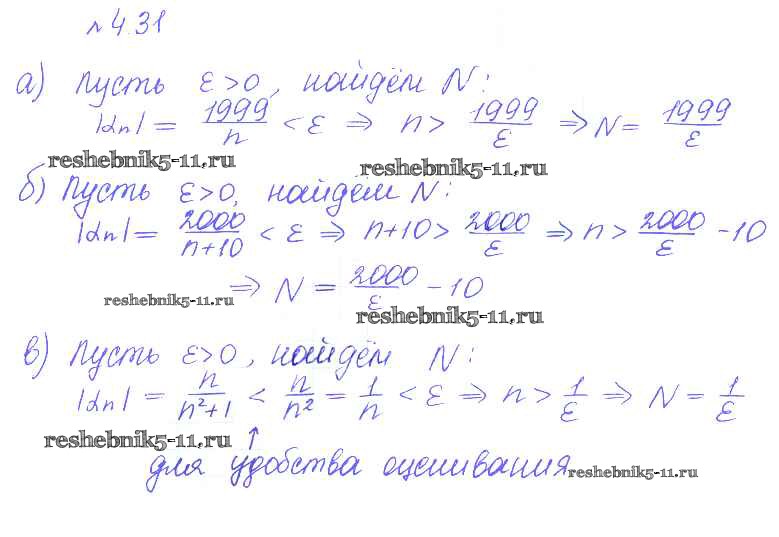 №4.31
а) Пусть ε>0, найдём N:
|αn| = 1999/n < ε ⇒ n > 1999/ε ⇒ N = 1999/ε
reshebnik5-11.ru reshebnik5-11.ru
б) Пусть ε>0, найдем N:
|αn| = 2000/n+10 < ε ⇒ n+10 > 2000/ε ⇒ n > 2000/ε -10
⇒ N = 2000/ε -10
reshebnik5-11.ru reshebnik5-11.ru
в) Пусть ε>0, найдём N:
|αn| = n/n²+1 < n/n² = 1/n < ε ⇒ n > 1/ε ⇒ N = 1/ε
reshebnik5-11.ru ↑
для удобства оценивания reshebnik5-11.ru